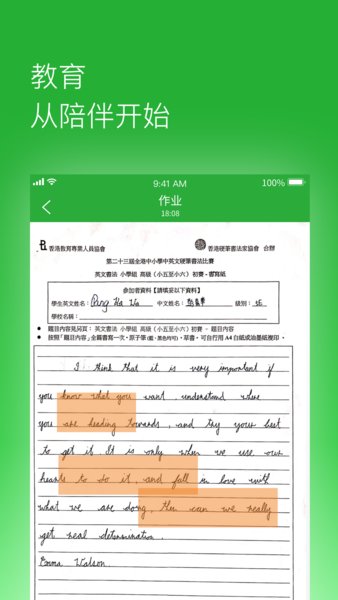 教育
从陪伴开始
9:41 AM
100%
作业
18:08
香港教育專業人員協會
香港硬筆書法家協會 合辦
第二十三屆全港中小學中英文硬筆書法比賽
英文書法 小學組 高級（小五至小六）初賽 - 書寫紙
參加者資料【請填妥以下資料】
學生英文姓名： Pang Ka Wa 中文姓名： 級別： 5E
學校名稱：
● 題目內容見另頁： 英文書法 小學組 高級（小五至小六）初賽 - 題目內容
● 按照「題目內容」全篇書寫一次。原子筆(藍、黑色均可)。草書。可自行用 A4 白紙或油墨紙複印。
I think that it is very important if
you know what you want understand where
you are heading towards, and try your best
to get it. It is only when we use our
hearts to do it, and fall in love with
what we are doing, then can we really
get real determination.
Emma Watson